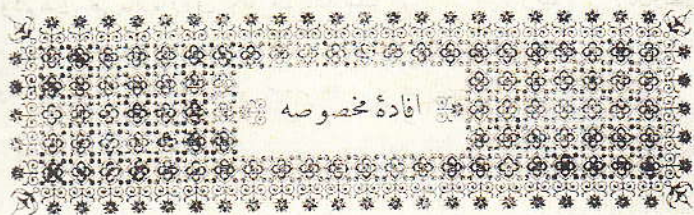 افادهٔ مخصوصه